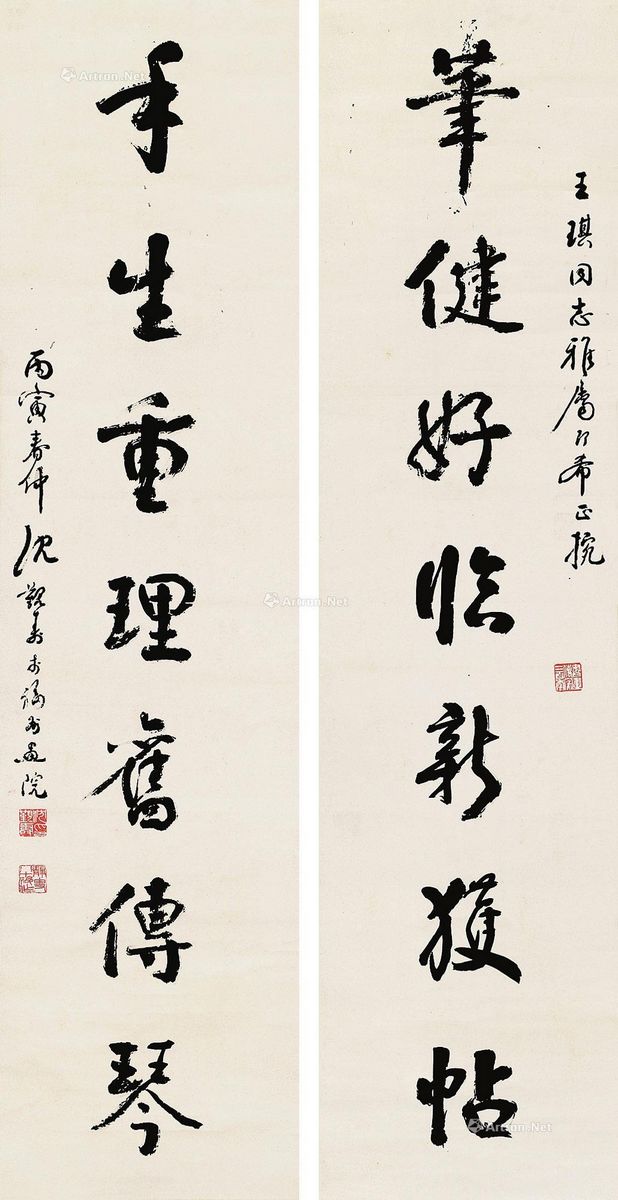 王琪同志雅屬即希正捥
筆健好臨新獲帖
手生重理舊傳琴
丙寅春仲沈覲壽於福州畫院
Artron.Net
Artron.Net
Artron.Net